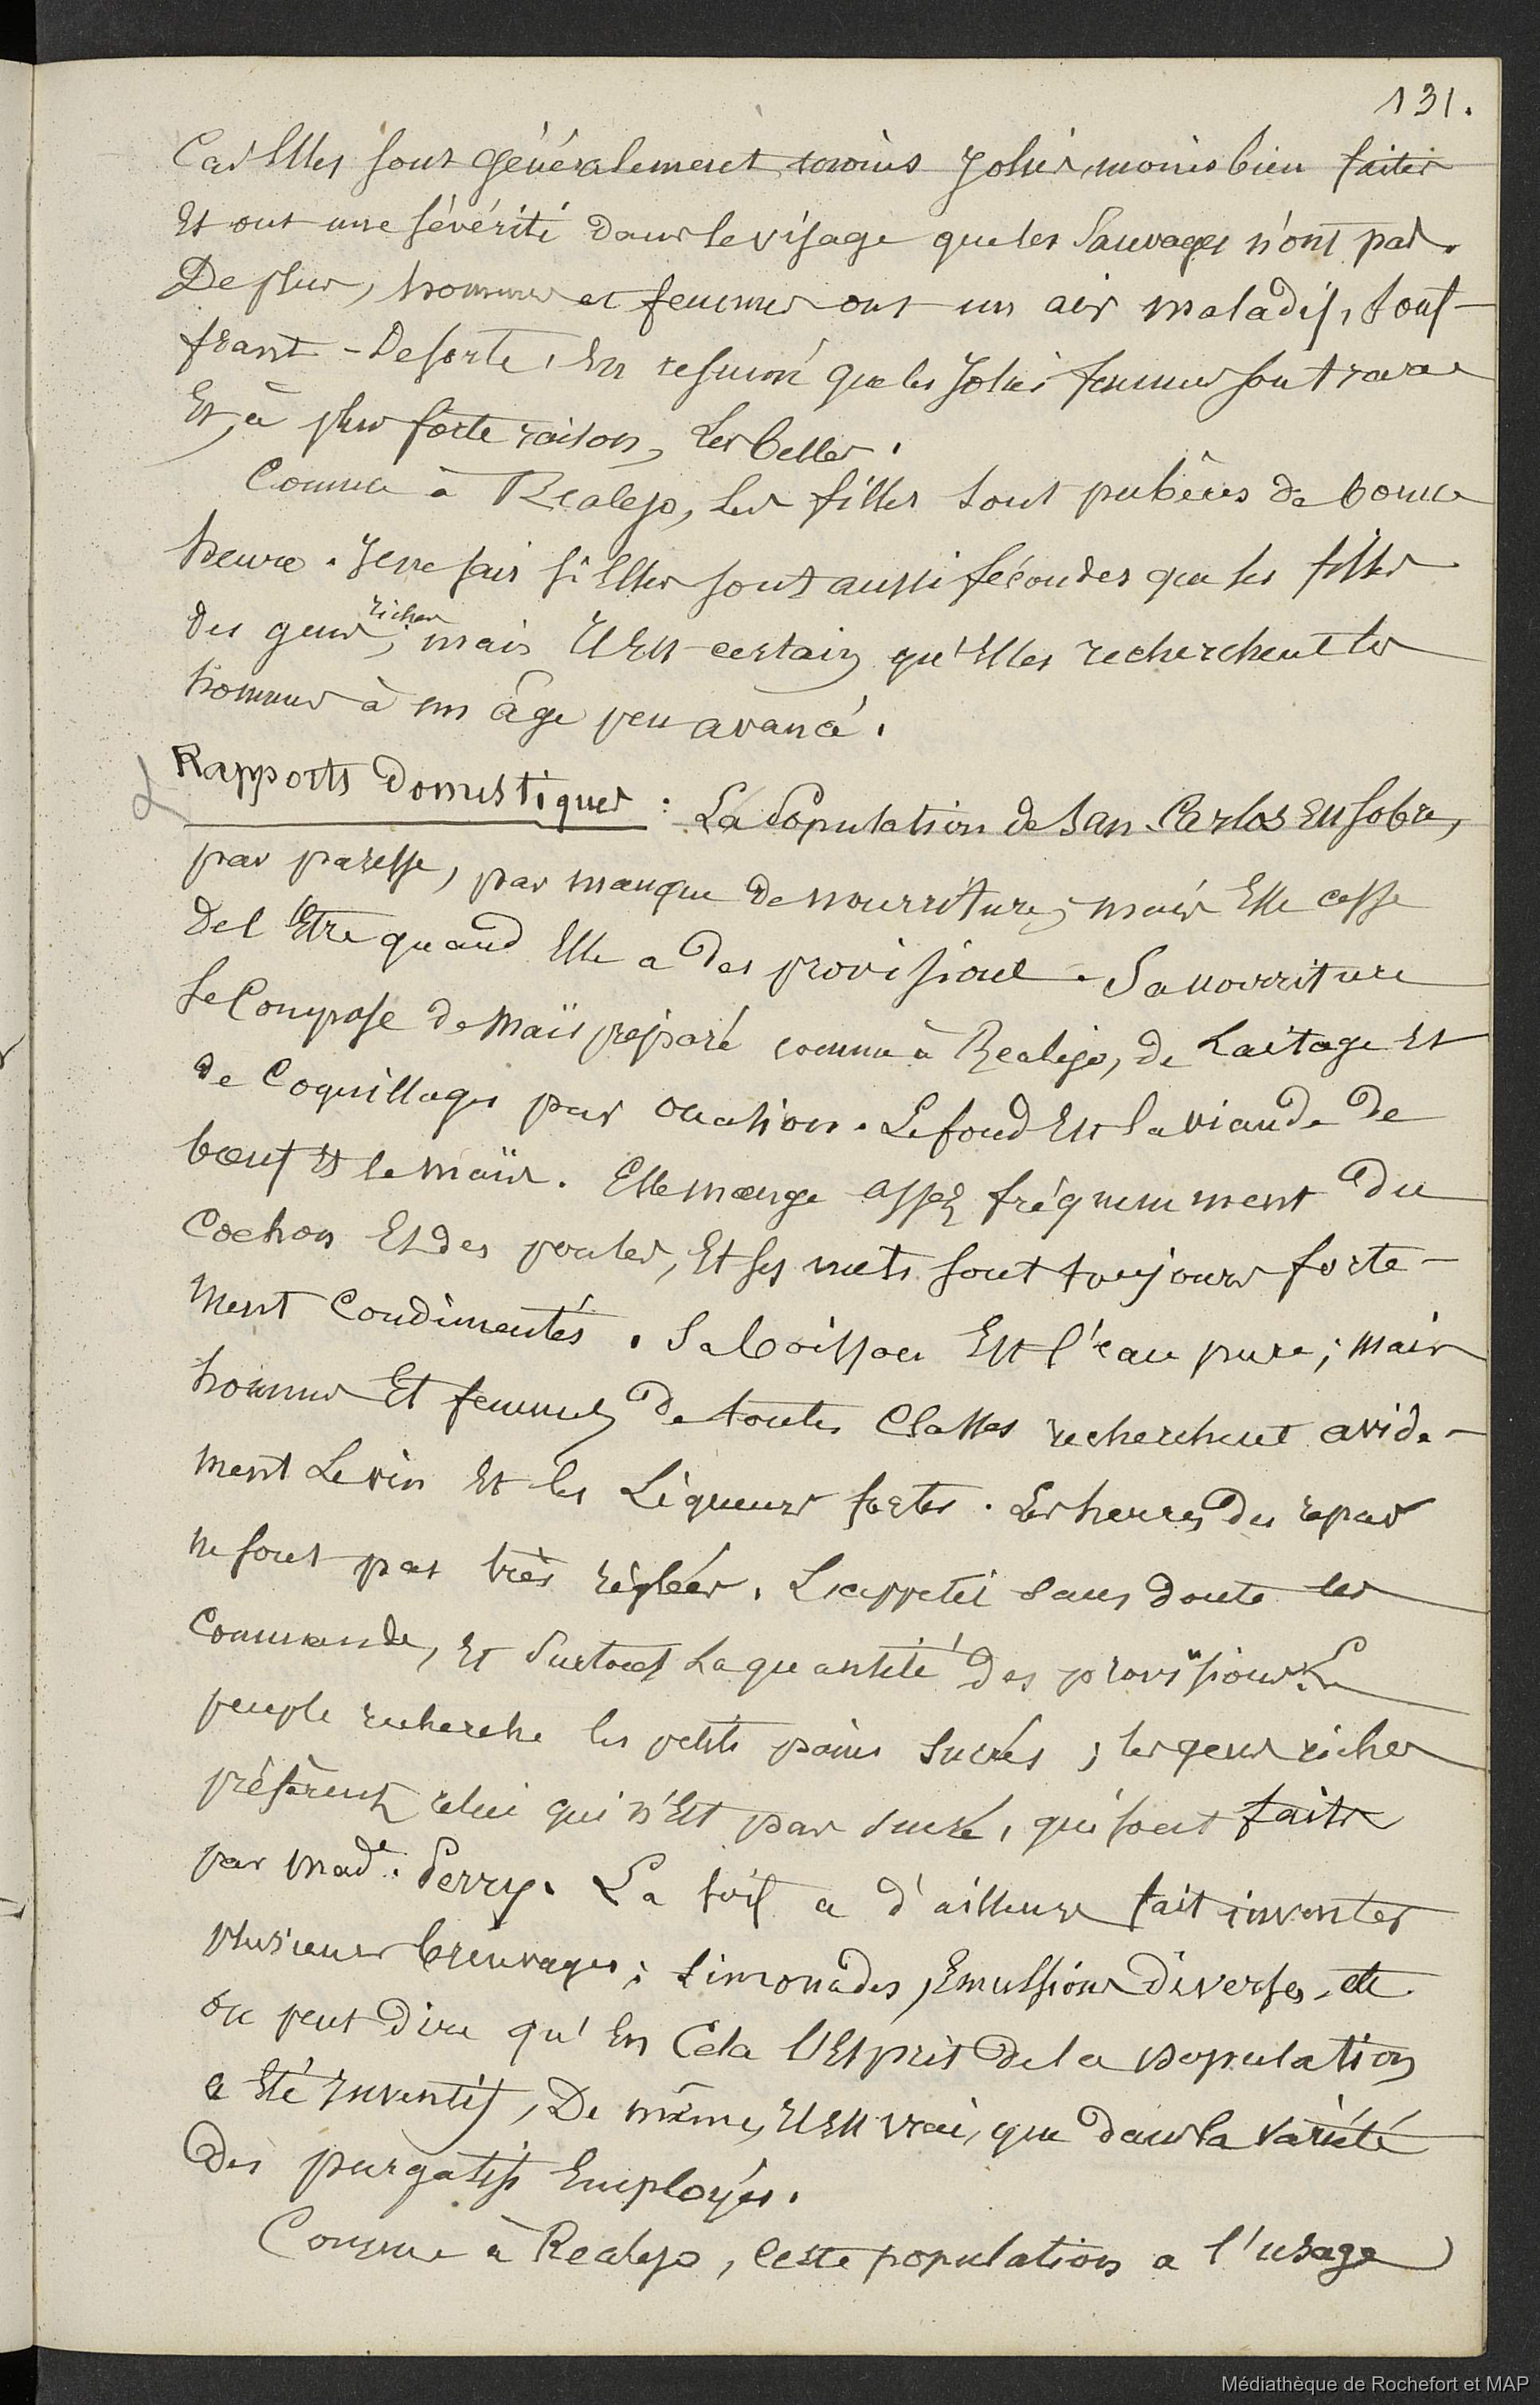 131.
Car Elles sont généralement moins Jolies, moins bien faites
Et ont une sévérité dans le visage que les Sauvages n'ont pas.
De plus, hommes et femmes ont un air maladif, souf-
frant - De sorte, En resumé que les Jolies femmes sont rares
Et, à plus forte raison, Les belles.
Comme à Realejo, Les filles sont pubères de bonne
heure. Je ne sais si Elles sont aussi fécondes que les filles
des gens riches, mais Il Est certain qu'Elles recherchent les
hommes à un âge peu avancé.
Rapports Domestiques : La Population de San-Carlos Est sobre,
par paresse, par manque de nourriture, mais Elle cesse
de l'Etre quand Elle a des provisions. Sa nourriture
se Compose de Maïs préparé comme à Realejo, de Laitage Et
de Coquillages par occasion. Le fond Est la viande de
boeuf Et le maïs. Elle mange assez fréquemment du
Cochon Et des poules, Et ses mets sont toujours forte-
ment Condimentés. Sa boisson Est l'eau pure; mais
hommes Et femmes de toutes Classes recherchent avide-
ment Le vin Et les Liqueurs fortes. Les heures des repas
ne sont pas très réglées. L'appetit sans doute les
Commande, Et Surtout La quantité des provisions. Le
peuple recherche les petits pains sucrés ; les gens riches
préfèrent celui qui n'Est pas sucré, qui sont faits
par Made. Perry. La soif a d'ailleurs fait inventer
plusieurs breuvages; Limonades, Emulsions Diverses, etc
on peut dire qu'En Cela l'Esprit de la population
a Eté Inventif, De même, Il Est vrai, que dans la variété
des purgatifs Employés.
Comme à Realejo, Cette population a l'usage
Médiathèque de Rochefort et MAP